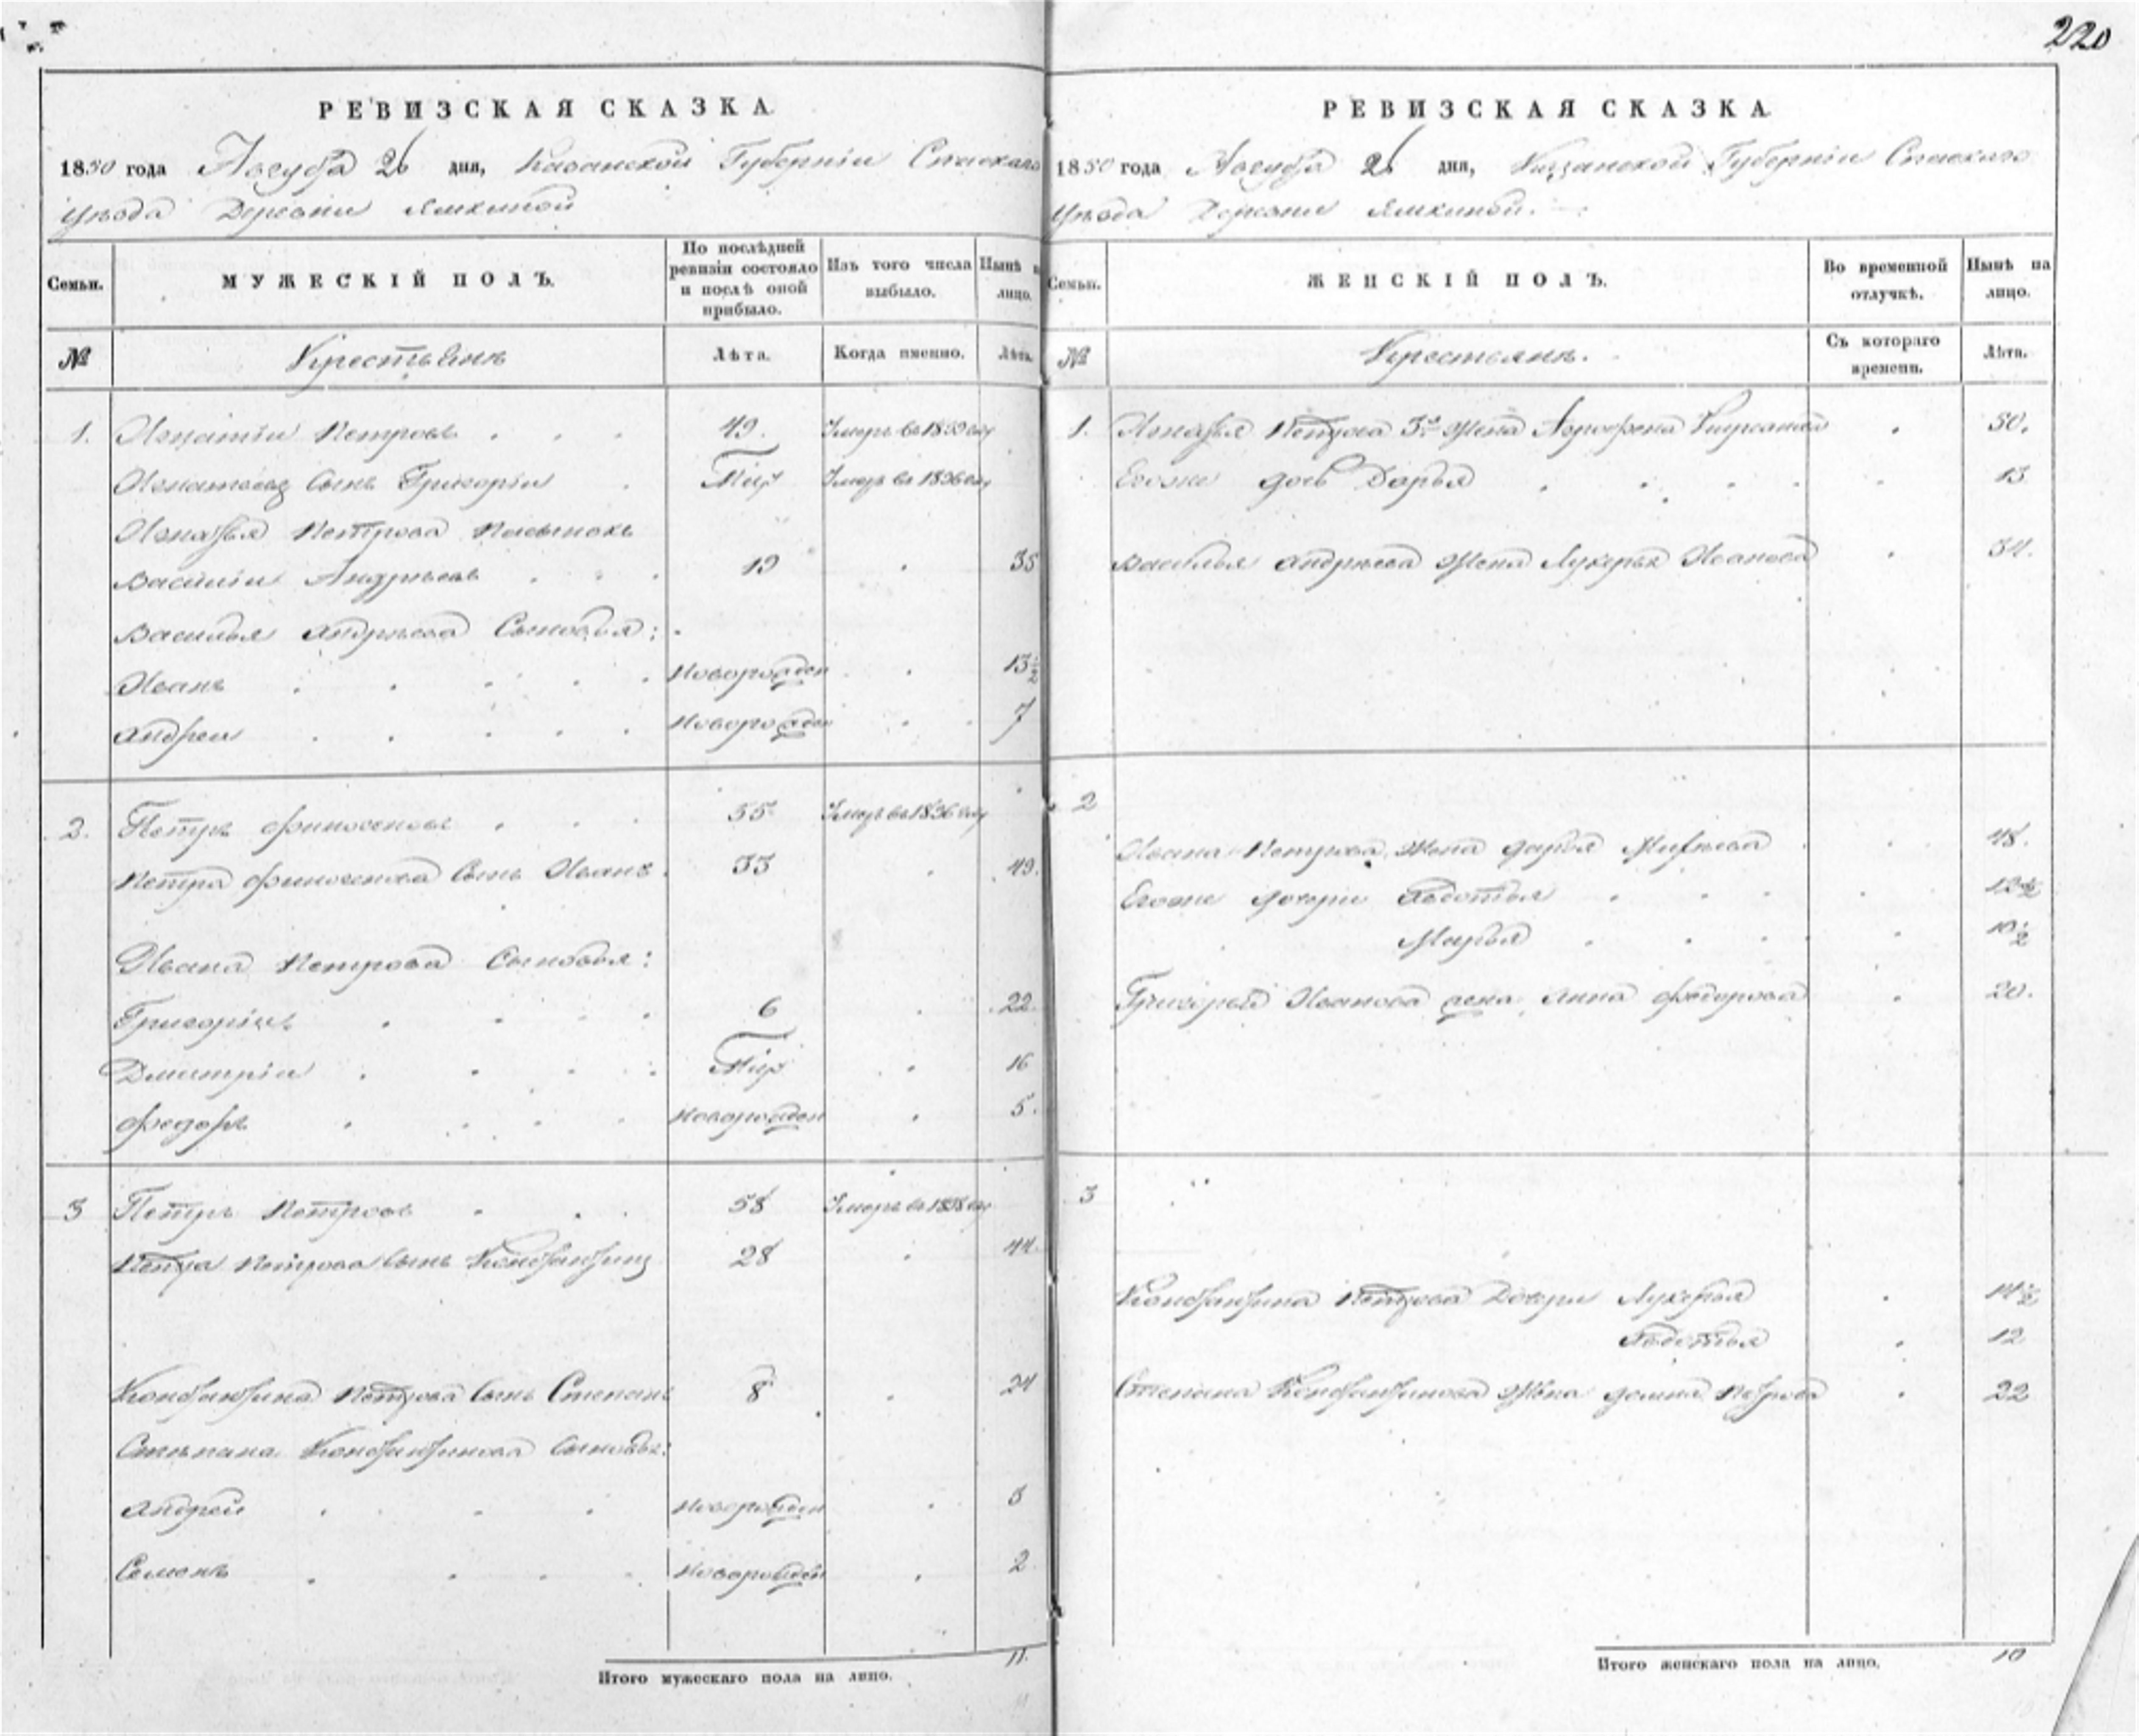 220
РЕВИЗСКАЯ СКАЗКА
1850 года Августа 26 дня, Казанской Губерніи Спаскаго
уѣзда Деревни Ямкиной
Семьи. МУЖЕСКІЙ ПОЛЪ. По послѣдней ревизіи состояло и послѣ оной прибыло. Изъ того числа выбыло. Нынѣ на лицо.
№ Крестьянъ Лѣта. Когда именно. Лѣта.
1. Игнатіи Петровъ 49. Умеръ въ 1839 году
Игнатьевъ Сынъ Григоріи Умеръ въ 1836 году
Игнатья Петрова Пасынокъ
Василіи Андрѣевъ 19 35
Василья Андрѣева Сыновья:
Иванъ Новорожден 13½
Андреи Новорожден 7
2. Петръ Финогеновъ 55 Умеръ въ 1836 году
Петра Финогенова Сынъ Иванъ 33 49.
Ивана Петрова Сыновья:
Григоріи 6 22.
Дмитріи 16
Федоръ Новорожден 5.
3 Петръ Петровъ 58 Умеръ въ 1838 году
Петра Петрова Сынъ Константинъ 28 44.
Константина Петрова Сынъ Степанъ 8 24
Степана Константинова Сыновья:
Андрей Новорожден 3
Семенъ Новорожден 2
Итого мужескаго пола на лицо. 11.
РЕВИЗСКАЯ СКАЗКА
1850 года Августа 26 дня, Казанской Губерніи Спаскаго
Уѣзда Деревни Ямкиной.
Семьи. ЖЕНСКІЙ ПОЛЪ. Во временной отлучкѣ. Нынѣ на лицо.
№ Крестьянъ. Съ котораго времени. Лѣта.
1. Игнатья Петрова 3я Жена Агрофена 50.
Егоже дочь Дарья 13
Василья Андрѣева Жена Лукерья Иванова 34.
2
Ивана Петрова Жена Дарья 48.
Егоже дочери Авдотья 12½
Марья 10½
Григорья Иванова жена Анна Федорова 20.
3
Константина Петрова Дочери Лукерья 14½
Авдотья 12
Степана Константинова Жена Домна Петрова 22
Итого женскаго пола на лицо. 10